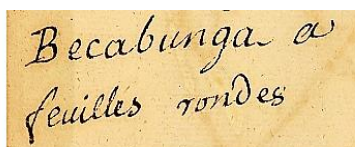 Becabunga a
feuilles rondes